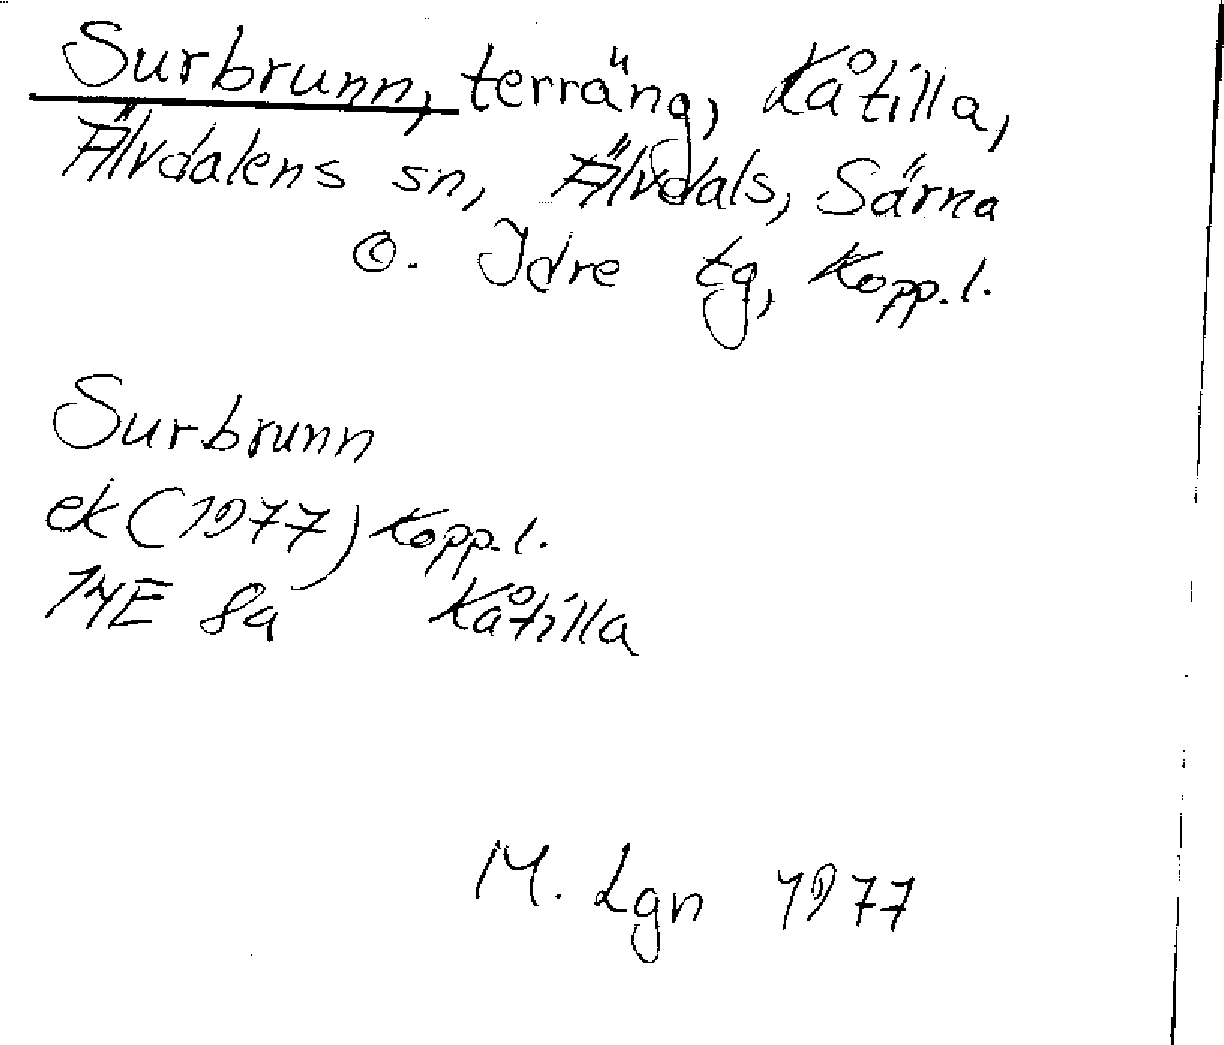 Surbrunn, terräng, Kåtilla,
Älvdalens sn, Älvdals, Särna
o. Idre tg, Kopp. l.
Surbrunn
ek (1977) Kopp. l.
14E 8a Kåtilla
M. Lgn 1977